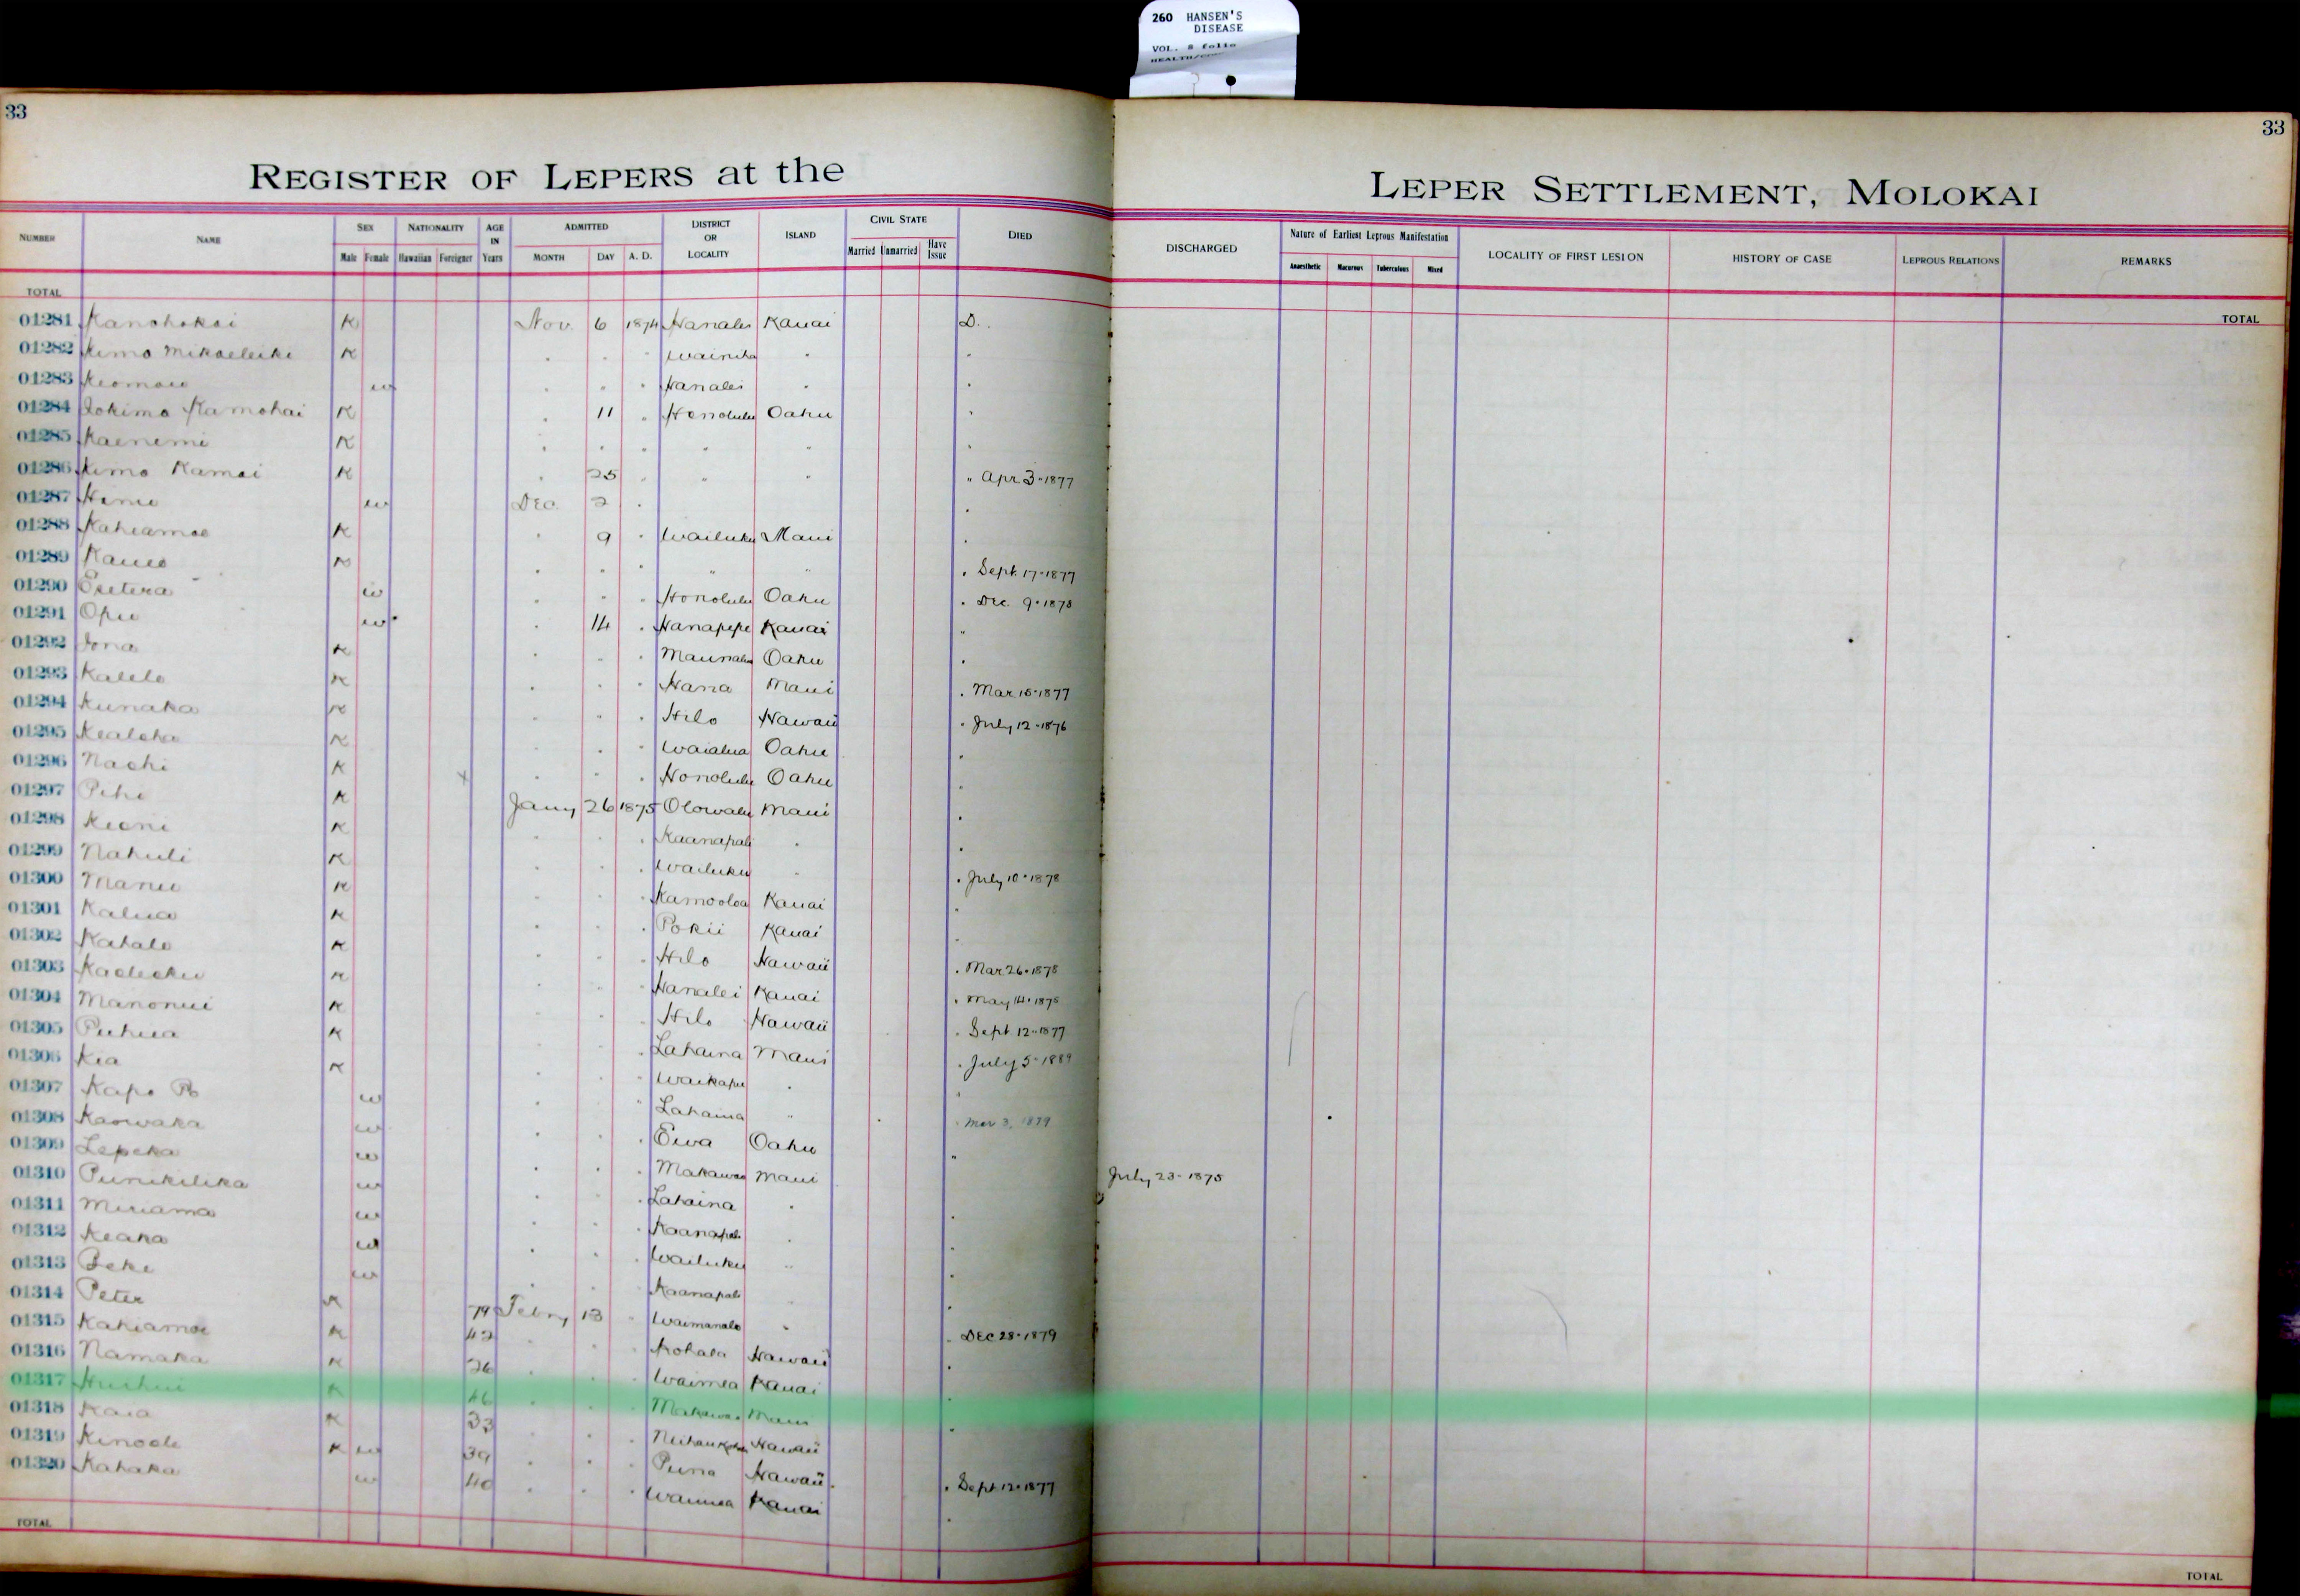 260 HANSEN'S
DISEASE
VOL. 8 folio
33
33
REGISTER OF LEPERS at the
LEPER SETTLEMENT, MOLOKAI
NUMBER NAME SEX Male Female NATIONALITY Hawaiian Foreigner AGE IN Years ADMITTED MONTH DAY A. D. DISTRICT OR LOCALITY ISLAND CIVIL STATE Married Unmarried Have Issue DIED
DISCHARGED Nature of Earliest Leprous Manifestation Anaesthetic Macurous Tuberculous Mixed LOCALITY OF FIRST LESION HISTORY OF CASE LEPROUS RELATIONS REMARKS
TOTAL
TOTAL
01281 Kanohokai K Nov. 6 1874 Hanalei Kauai D.
01282 Kimo Mikaeleike K " " " Wainiha " "
01283 Keomaw w " " " Hanalei " "
01284 Iokimo Kamohai K " 11 " Honolulu Oahu "
01285 Kaenemi K " " " " " "
01286 Kimo Kamai K " 25 " " " " Apr 3-1877
01287 w Dec. 2 " "
01288 Kahiamoe K " 9 " Wailuku Maui "
01289 K " " " " " " Sept. 17-1877
01290 w " " " Honolulu Oahu " Dec. 9-1878
01291 Opu w " 14 " Hanapepe Kauai "
01292 Iona K " " " Maunalua Oahu "
01293 Kalelo K " " " Hana Maui " Mar 15-1877
01294 Kunaka K " " " Hilo Hawaii " July 12-1876
01295 Kealoha K " " " Waialua Oahu "
01296 Naohi K x " " " Honolulu Oahu "
01297 Pihi K Jany 26 1875 Olowalu Maui "
01298 Keoni K " " " Kaanapali " "
01299 Nahuli K " " " Wailuku " " July 10-1878
01300 Manu K " " " Kamooloa Kauai "
01301 Kalua K " " " Pokii Kauai "
01302 Kahalo K " " " Hilo Hawaii " Mar 26-1878
01303 K " " " Hanalei Kauai " May 14-1875
01304 Manonui K " " " Hilo Hawaii " Sept 12-1877
01305 Puhua K " " " Lahaina Maui " July 5-1889
01306 Kia K " " " Waikapu " "
01307 Kapo w " " " Lahaina " " Mar 3, 1879
01308 Kaowaka w " " " Ewa Oahu "
01309 Lepeka w " " " Makawao Maui July 23-1875
01310 Punikilika w " " " Lahaina " "
01311 Miriama w " " " Kaanapali " "
01312 Keaka w " " " Wailuku " "
01313 Beke w " " " Kaanapali " "
01314 Peter K 79 Febry 13 " Waimanalo " " Dec 28-1879
01315 Kahiamoe K 42 " " " Kohala Hawaii "
01316 Namaka K 26 " " " Waimea Kauai "
01317 Huihui K 46 " " " Makawao Maui "
01318 Kaia K 33 " " " Hawaii
01319 Kinoole K w 39 " " " Puna Hawaii " Sept 12-1877
01320 Kahaka w 40 " " " Waimea Kauai "
TOTAL
TOTAL